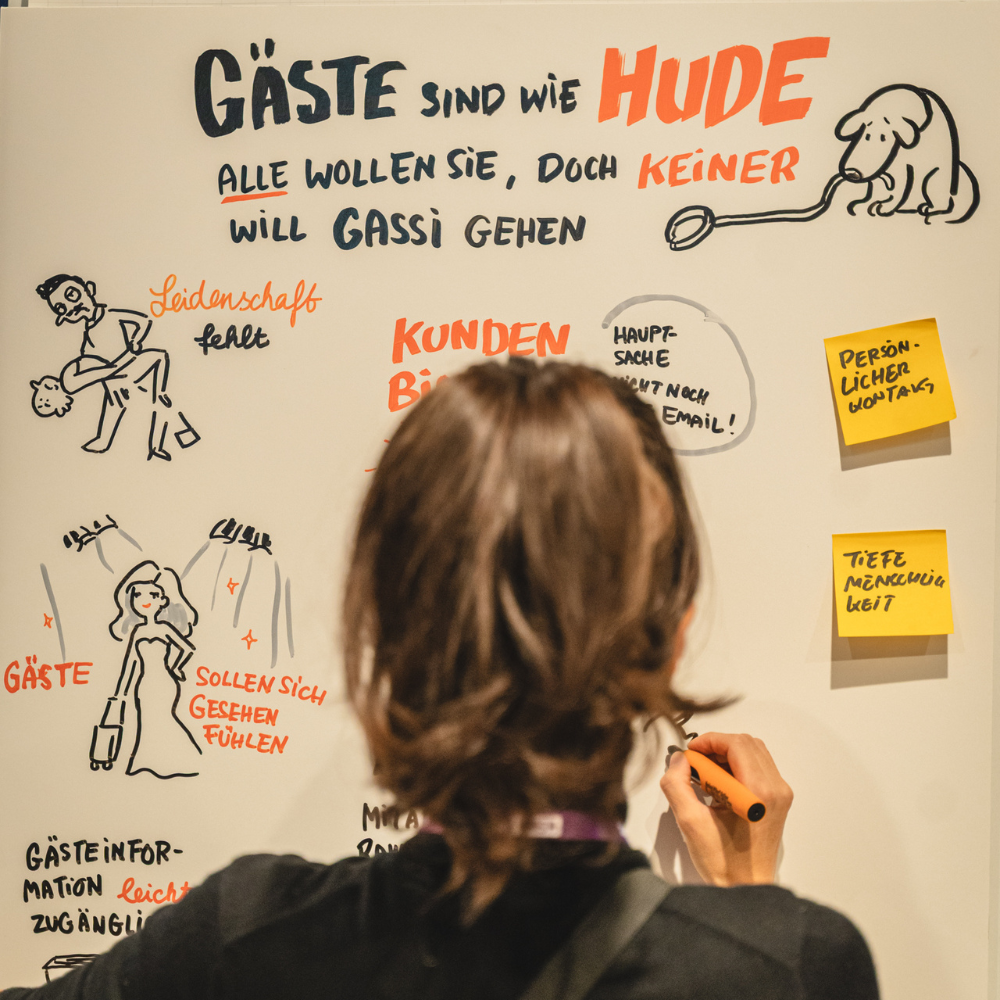 GÄSTE SIND WIE HUDE
ALLE WOLLEN SIE, DOCH KEINER
WILL GASSI GEHEN
Leidenschaft
fehlt
KUNDEN
HAUPT-
SACHE
NICHT NOCH
EMAIL!
PERSÖN-
LICHER
KONTAKT
TIEFE
MENSCHLICH
KEIT
GÄSTE
SOLLEN SICH
GESEHEN
FÜHLEN
GÄSTEINFOR-
MATION leicht